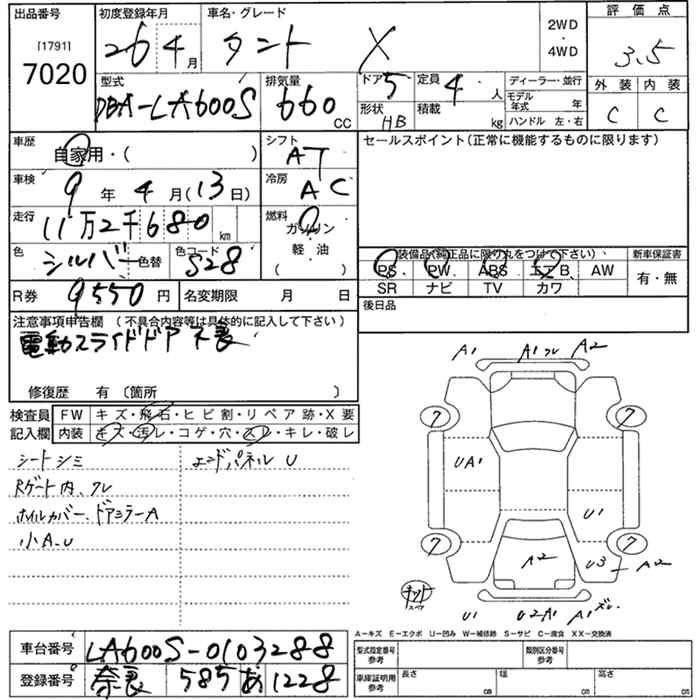 出品番号
[1791]
7020
初度登録年月
26 4月
車名・グレード
タント X
2WD
・
4WD
評価点
3.5
型式
DBA-LA600S
排気量
660 CC
ドア 5
形状 HB
定員 4 人
積載 kg
ディーラー・並行
モデル年式 年
ハンドル 左・右
外装 内装
C C
車歴
自家用・( )
シフト
AT
セールスポイント(正常に機能するものに限ります)
車検
9年 4月(13日)
冷房
AC
走行
11万2千680km
燃料
ガソリン
軽・油
( )
色
シルバー 色替
色コード
S28
装備品(純正品に限り丸をつけて下さい)、
PS. PW. ABS. エアB. AW
SR ナビ TV カワ
新車保証書
有・無
R券 9550円
名変期限 月 日
後日品
注意事項申告欄 (不具合内容等は具体的に記入して下さい)
電動スライドドア不良
修復歴 有 〔箇所 〕
検査員
記入欄
FW キズ・飛石・ヒビ割・リペア跡・X要
内装 キズ・汚レ・コゲ・穴・スレ・キレ・破レ
シートシミ
Rゲート内、クレ
ホイルカバー、ドアミラーA
小A.U
エンドパネル U
A1 A1 クレ A2
7 7
UA1
U1
7 7
A2
U3 A2
キット
スペア
U1 U2A1 A1 ズレ
A-キズ E-エクボ U-凹み W-補修跡 S-サビ C-腐食 XX-交換済
車台番号 LA600S-0103288
登録番号 奈良 585 あ 1228
型式指定番号
参考
類別区分番号
参考
車庫証明用
参考
長さ cm
幅 cm
高さ cm